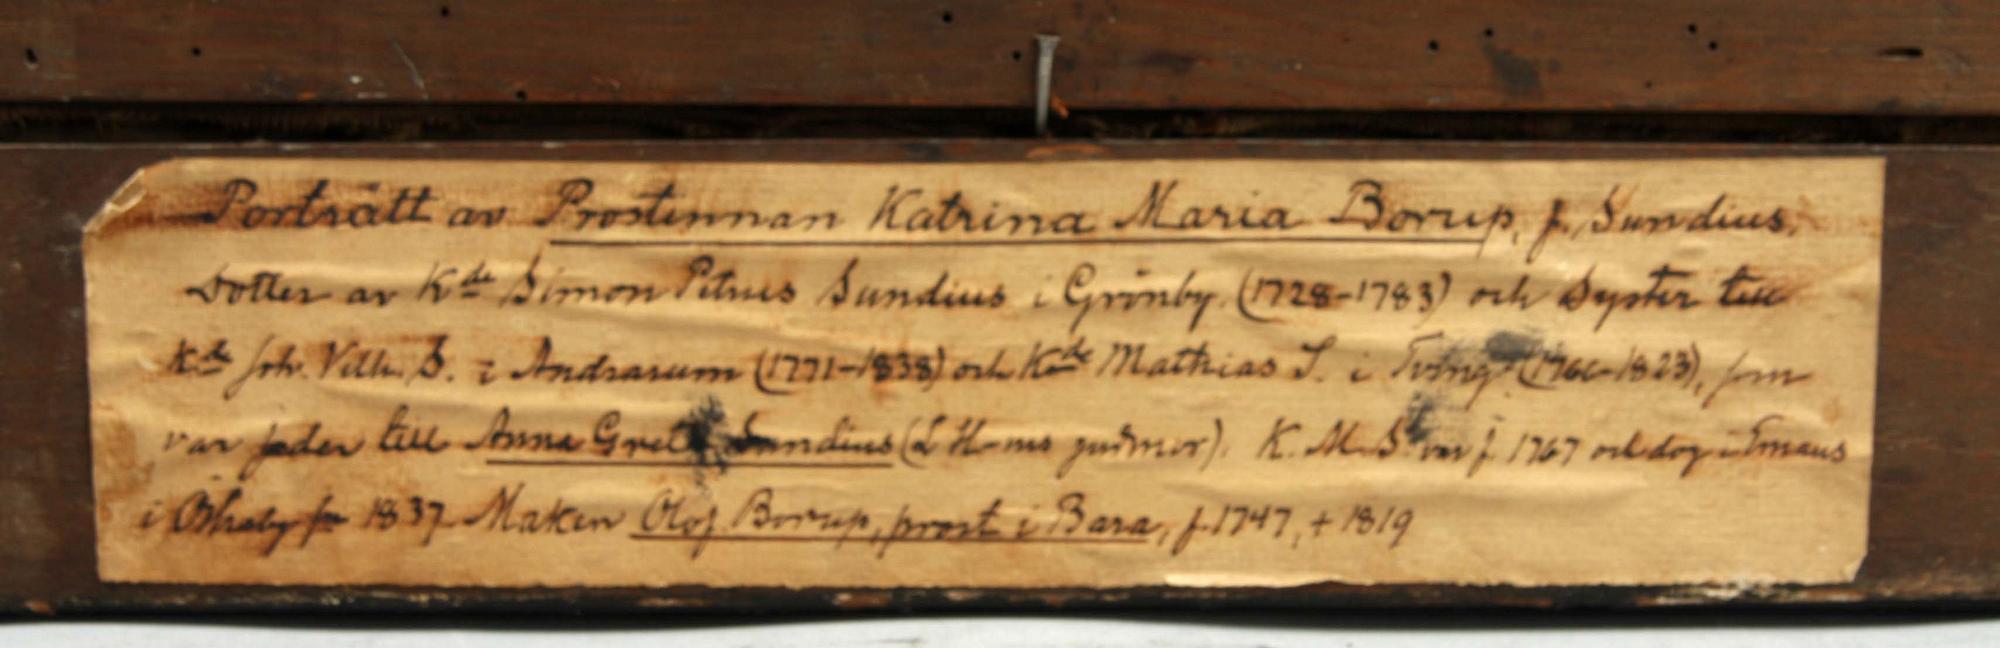 Porträtt av Prostinnan Katrina Maria Borup, f. Sundius.
Dotter av Kde Simon Petrus Sundius i Grönby (1728-1783) och Syster till
Kde Joh. Vilh. S. i Andrarum (1771-1838) och Kde Mathias S. i Tving (1766-1823), som
var fader till Anna Greta Sundius (L H-ms mor). K. M. S. var f. 1767 och dog i
i 1837 Maken Olof Borup, prost i Bara, f. 1747, + 1819